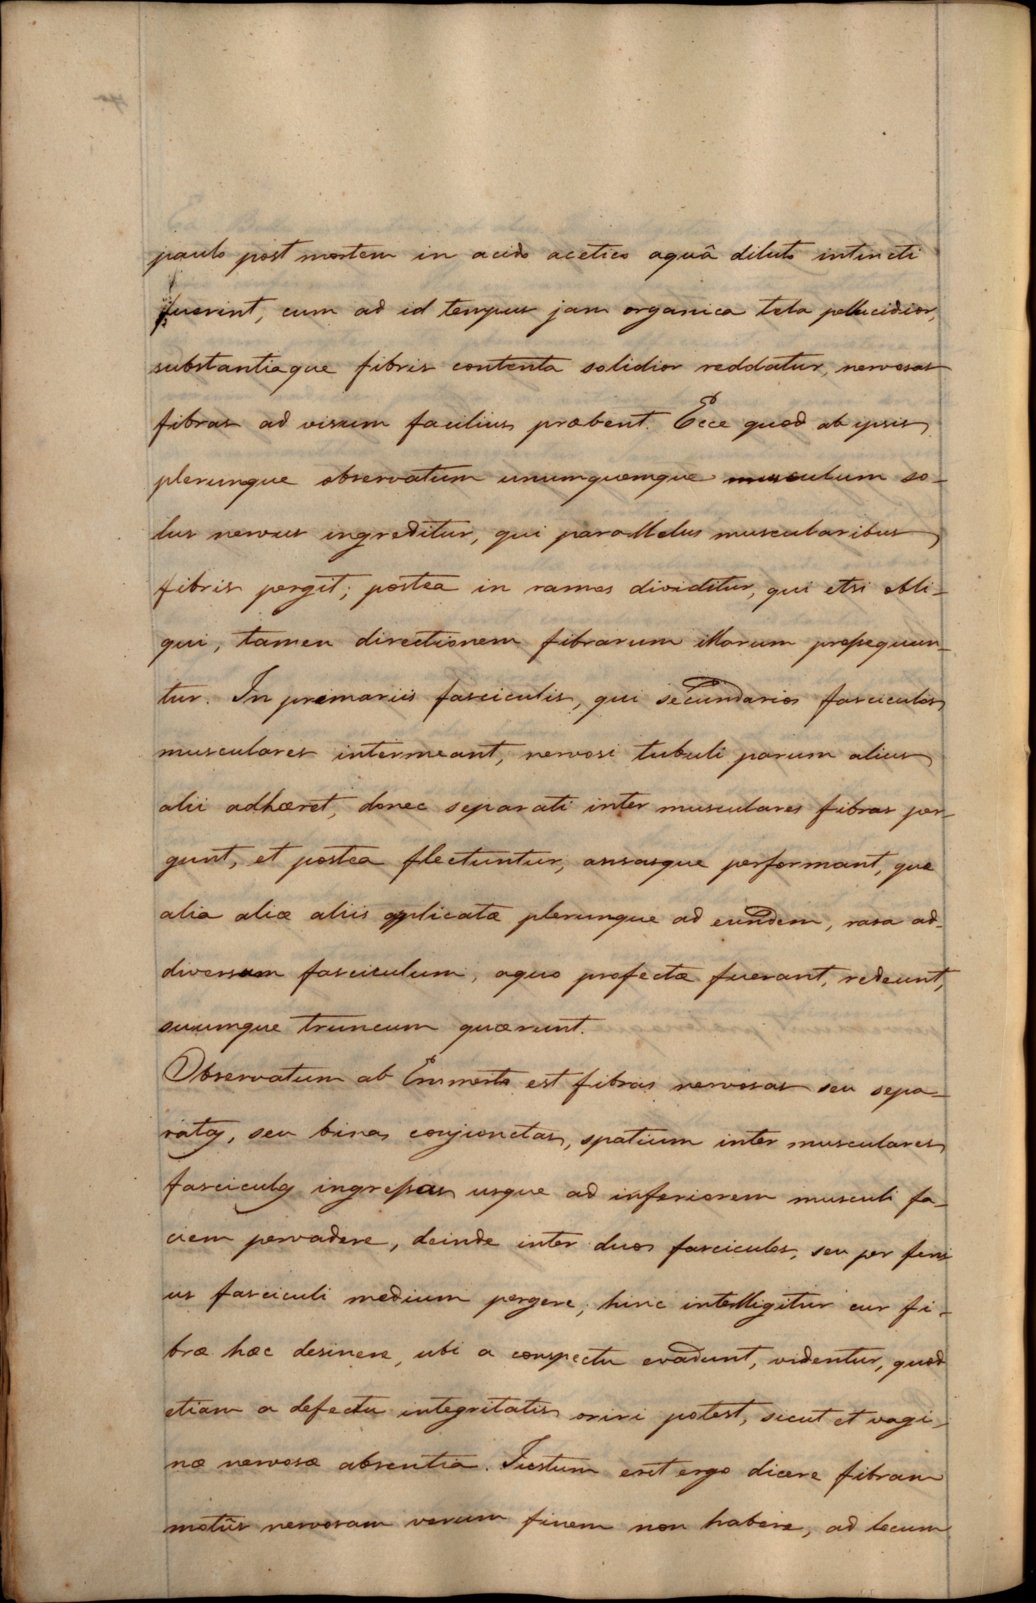 paulo post mortem in acido acetico aquâ diluto intincti
fuerint, cum ad id tempus jam organica tela pellucidior,
substantiaque fibris contenta solidior reddatur, nervosas
fibras ad visum facilius præbent. Ecce quod ab ipsis
plerunque observatum unumquemque musculum so-
lus nervus ingreditur, qui parallelus muscularibus
fibris pergit; postea in ramos dividitur, qui etsi obli-
qui, tamen directionem fibrarum illorum prosequun-
tur. In premariis fasciculis, qui secundarios fasciculos
musculares intermeant, nervosi tubuli parum alius
alii adhæret, donec separati inter musculares fibras per-
gunt, et postea flectuntur, ansasque performant, que
alia aliæ aliis applicatæ plerunque ad eundem, rara ad
diversum fasciculum, aquo profectæ fuerant, redeunt,
suumque truncum quærunt.
Observatum ab Emmerto est fibras nervosas seu sepa-
ratas, seu binas conjunctas, spatium inter musculares
fasciculos ingressas usque ad inferiorem musculi fa-
ciem pervadere, deinde inter duos fasciculos, seu per
us fasciculi medium pergere; hinc intelligitur cur fi-
bræ hæc desinere, ubi a conspectu evadunt, videntur, quod
etiam a defectu integritatis oriri potest, sicut et vagi-
næ nervosæ absentia. Justum erit ergo dicere fibram
motûs nervosam verum finem non habere, ad locum